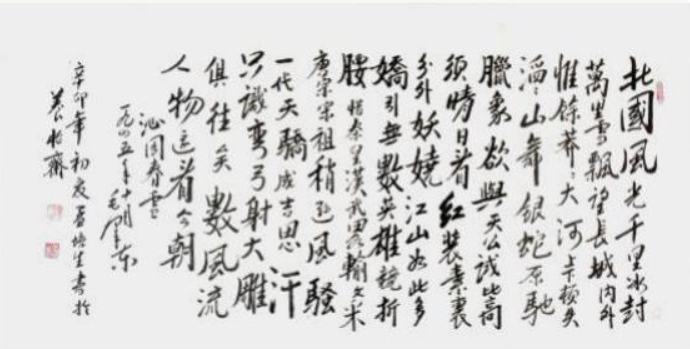 北國風光千里冰封
萬里雪飄望長城内外
惟餘莽〻大河上下頓失
滔〻山舞銀蛇原馳
臘象欲與天公試比高
須晴日看紅裝素裹
分外妖嬈江山如此多
嬌引無數英雄競折
腰惜秦皇漢武略輸文采
唐宗宋祖稍遜風騷
一代天驕成吉思汗
只識彎弓射大雕
俱往矣數風流
人物还看今朝
沁園春雪
一九四五年 毛澤東
辛卯年初夏 培生書於
養 齋